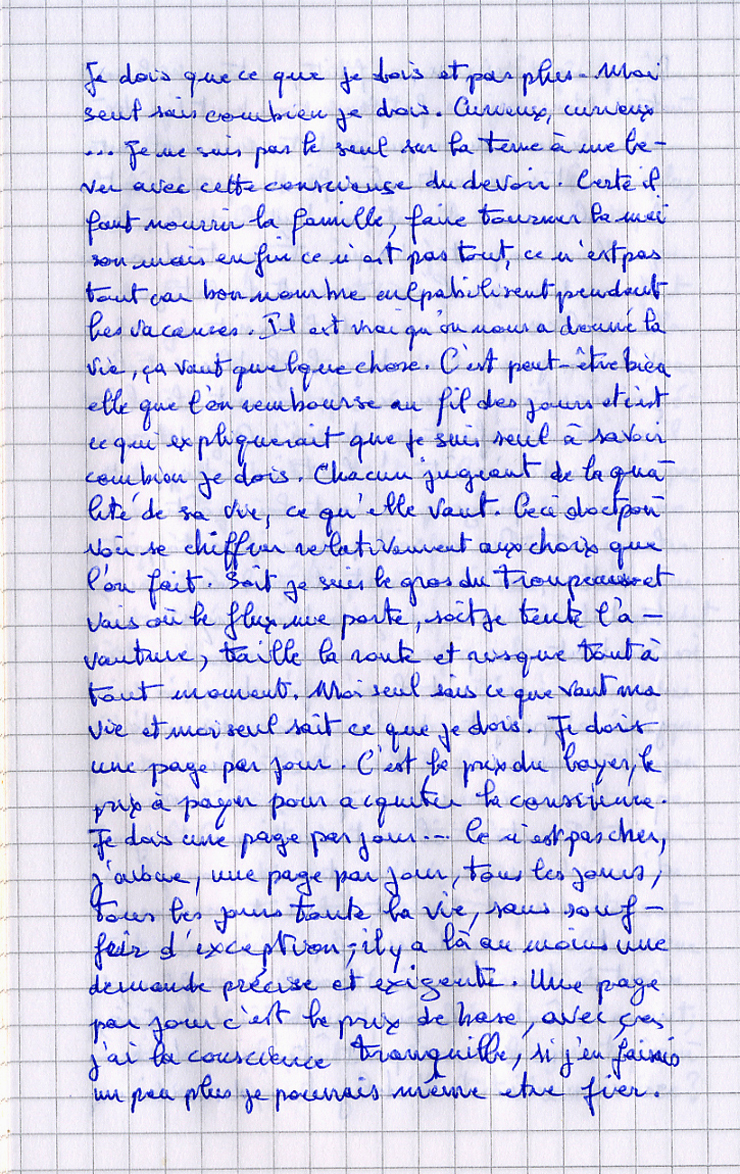 Je dois que ce que je dois et pas plus. Moi
seul sais combien je dois. Curieux, curieux
... Je ne suis pas le seul sur la terre à me le-
ver avec cette conscience du devoir. Certe il
faut nourrir la famille, faire tourner la mai
son mais enfin ce n'est pas tout, ce n'est pas
tout car bon nombre culpabilisent pendant
les vacances. Il est vrai qu'on nous a donné la
vie, ça vaut quelque chose. C'est peut-être bien
elle que l'on rembourse au fil des jours et c'est
ce qui expliquerait que je suis seul à savoir
combien je dois. Chacun jugeant de la qua
lité de sa vie, ce qu'elle vaut. Ceci doit pou
voir se chiffrer relativement aux choix que
l'on fait. Soit je suis le gros du troupeau et
vais où le flux me porte, soit je tente l'a-
vanture, taille la route et risque tout à
tout moment. Moi seul sais ce que vaut ma
vie et moi seul sait ce que je dois. Je dois
une page par jour. C'est le prix du loyer, le
prix à payer pour acquiter la conscience.
Je dois une page par jour... Ce n'est pas cher,
j'avoue, une page par jour, tous les jours,
tous les jours toute la vie, sans souf-
frir d'exception, il y a là au moins une
demande précise et exigente. Une page
par jour c'est le prix de base, avec ças
j'ai la conscience tranquille, si j'en faisais
un peu plus je pourrais même etre fier.